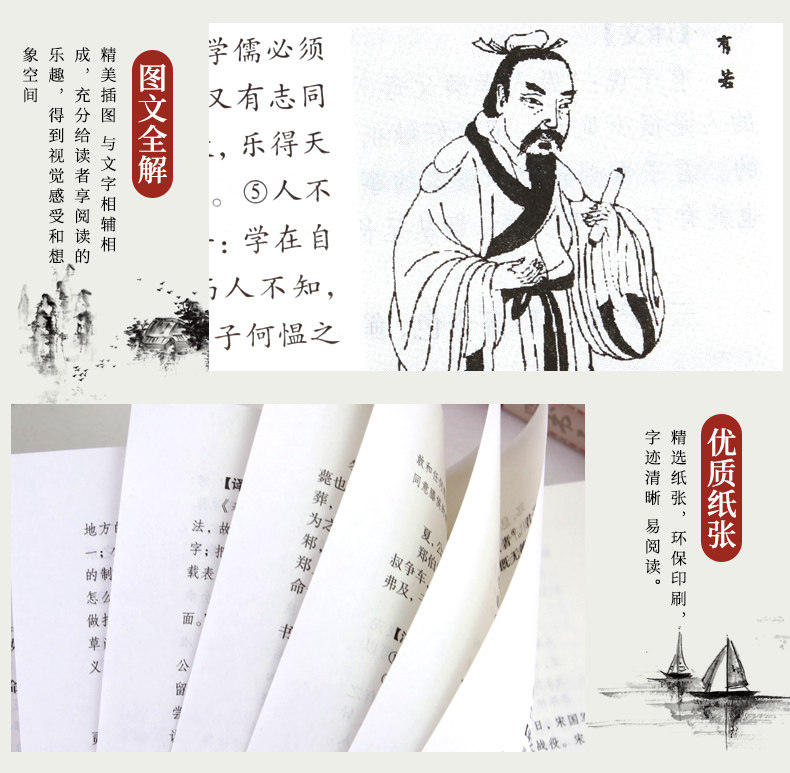 图文全解
精美插图 与文字相辅相
成,充分给读者享阅读的
乐趣,得到视觉感受和想
象空间
学儒必须
又有志同
,乐得天
。⑤人不
:学在自
人不知,
子何愠之
有若
优质纸张
精选纸张,环保印刷,
字迹清晰 易阅读。
地方的
一;
的制
怎么
做
草
义
法,故
字;
载表
面。
公
留
尝
薨也
葬,
为之
邾,
郑
命
书
敢和任
同意
夏,公
郑伯
叔争车,
弗及,
日,宋国
战役。宋